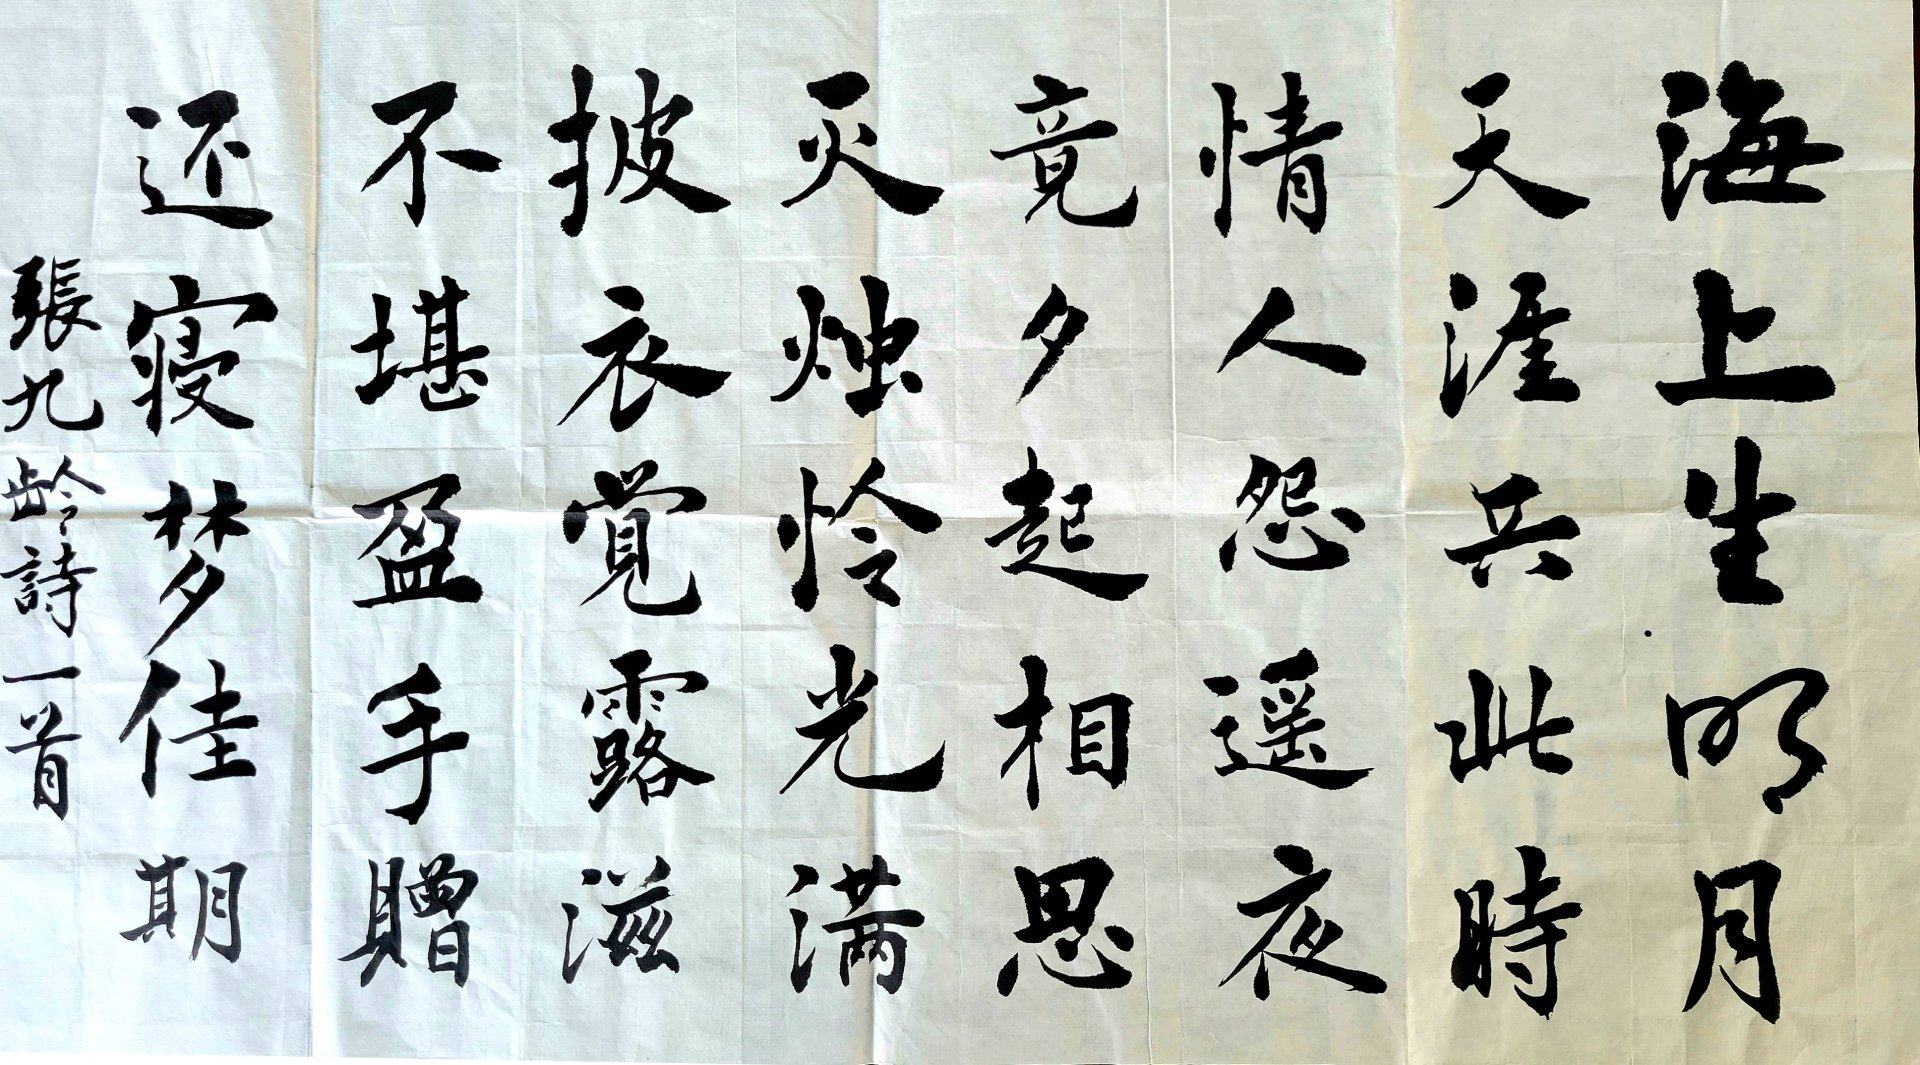 海上生明月
天涯共此時
情人怨遥夜
竟夕起相思
灭烛怜光满
披衣覚露滋
不堪盈手贈
还寝梦佳期
張九齢詩一首